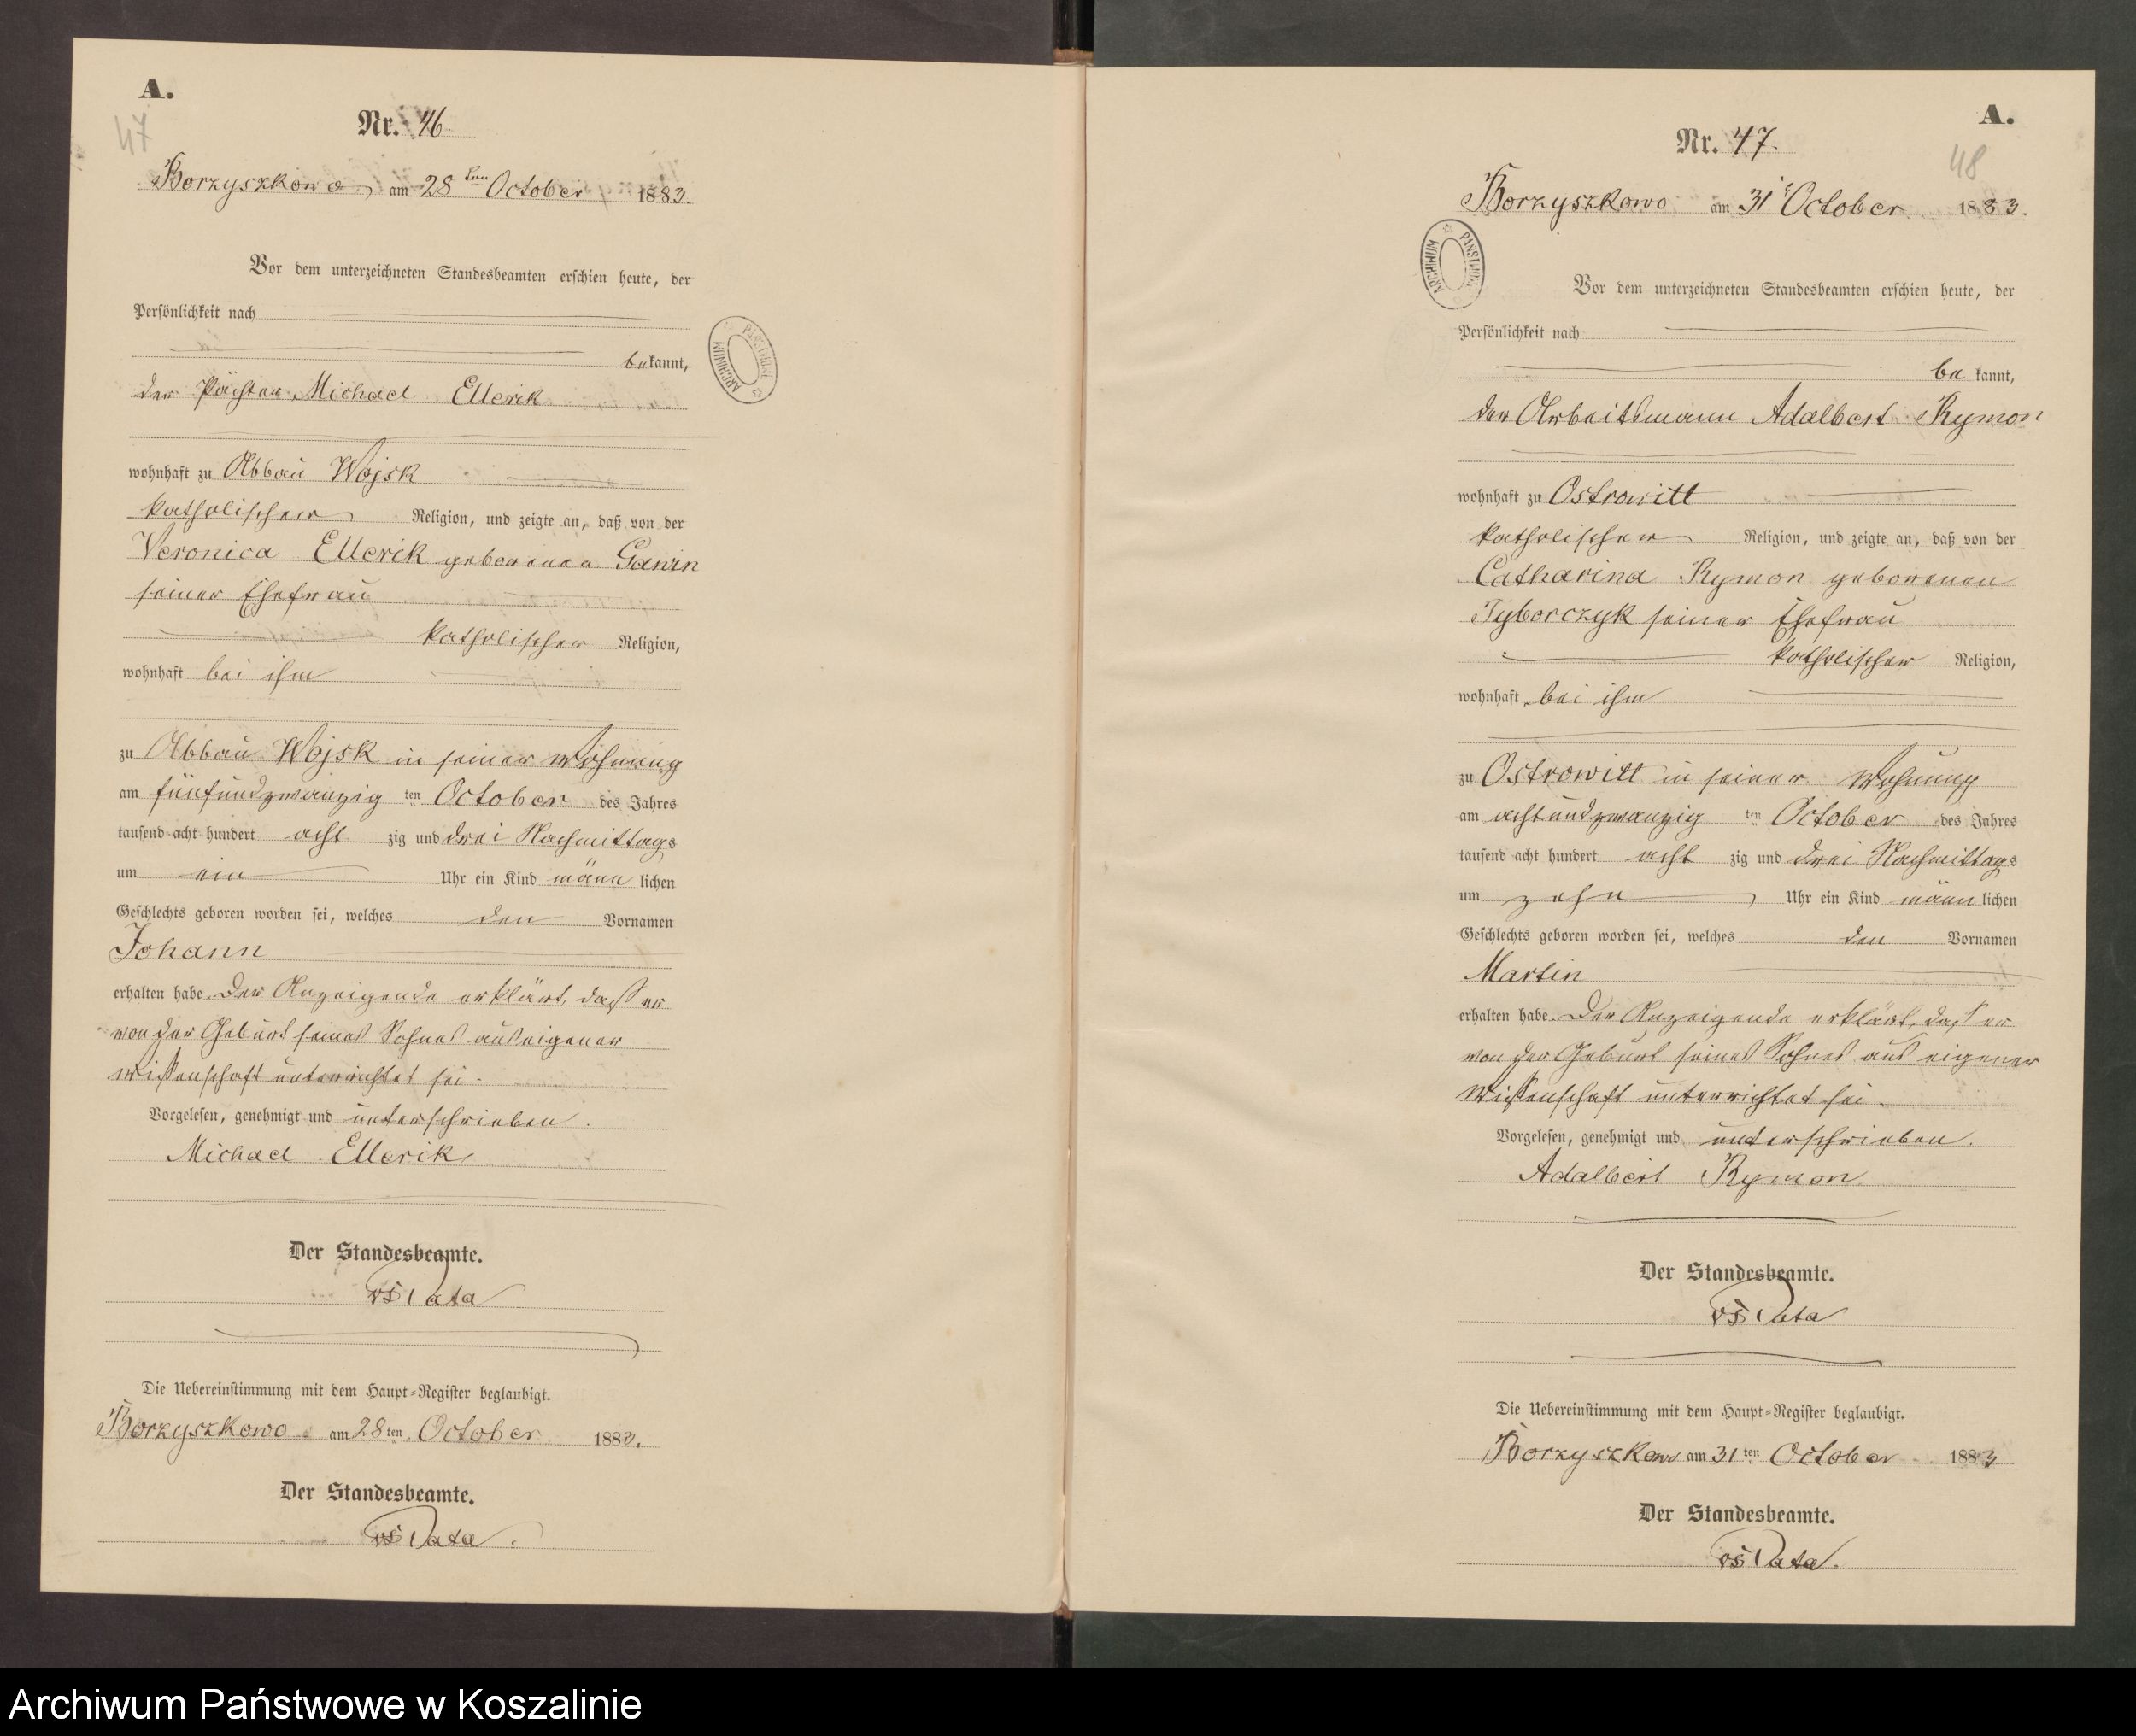 A.
47
Nr. 46
Borzyszkowo, am 28ten October 1883.
Vor dem unterzeichneten Standesbeamten erschien heute, der
Persönlichkeit nach
bekannt,
der Pächter Michael Ellerik
wohnhaft zu Abbau Wojsk
katholischer Religion, und zeigte an, daß von der
Veronica Ellerik geborenen Gawin
seiner Ehefrau
katholischer Religion,
wohnhaft bei ihm
zu Abbau Wojsk in seiner Wohnung
am fünfundzwanzig ten October des Jahres
tausend acht hundert acht zig und drei Nachmittags
um ein Uhr ein Kind männ lichen
Geschlechts geboren worden sei, welches den Vornamen
Johann
erhalten habe. Der Anzeigende erklärt, daß er
von der Geburt seines Sohnes aus eigener
Wissenschaft unterrichtet sei.
Vorgelesen, genehmigt und unterschrieben.
Michael Ellerik
Der Standesbeamte.
Data
Die Uebereinstimmung mit dem Haupt-Register beglaubigt.
Borzyszkowo am 28ten October 1883.
Der Standesbeamte.
Data.
ARCHIWUM PAŃSTWOWE
A.
48
Nr. 47.
Borzyszkowo am 31 October 1883.
ARCHIWUM PAŃSTWOWE
Vor dem unterzeichneten Standesbeamten erschien heute, der
Persönlichkeit nach
be kannt,
der Arbeitsmann Adalbert Rymon
wohnhaft zu Ostrowitt
katholischer Religion, und zeigte an, daß von der
Catharina Rymon geborenen
Tyborczyk seiner Ehefrau
katholischer Religion,
wohnhaft bei ihm
zu Ostrowitt in seiner Wohnung
am achtundzwanzig ten October des Jahres
tausend acht hundert acht zig und drei Nachmittags
um zehn Uhr ein Kind männ lichen
Geschlechts geboren worden sei, welches den Vornamen
Martin
erhalten habe. Der Anzeigende erklärt, daß er
von der Geburt seines Sohnes aus eigener
Wissenschaft unterrichtet sei.
Vorgelesen, genehmigt und unterschrieben.
Adalbert Rymon
Der Standesbeamte.
Data
Die Uebereinstimmung mit dem Haupt-Register beglaubigt.
Borzyszkowo am 31ten October 1883
Der Standesbeamte.
Data.
Archiwum Państwowe w Koszalinie